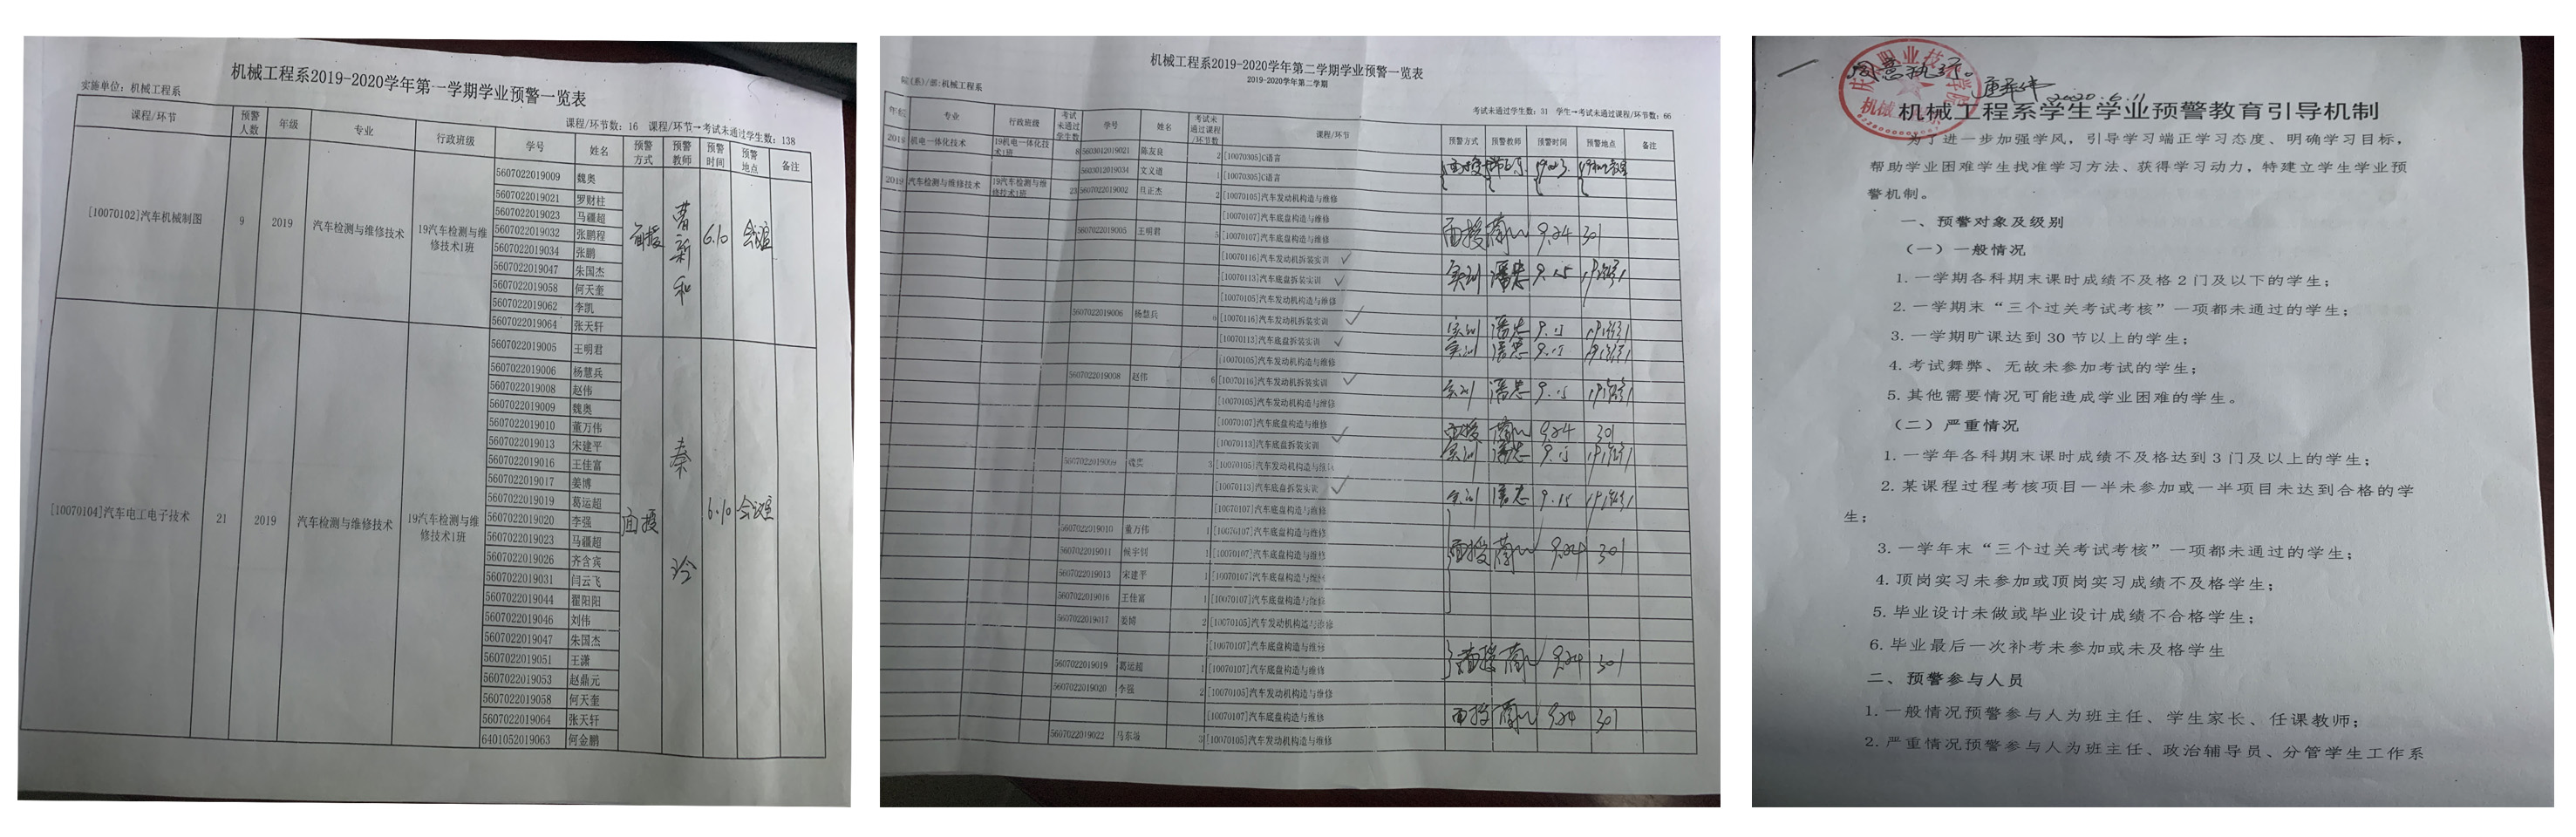 机械工程系2019-2020学年第一学期学业预警一览表
实施单位：机械工程系
课程/环节数：16 课程/环节→考试未通过学生数：138
课程/环节 预警人数 年级 专业 行政班级 学号 姓名 预警方式 预警教师 预警时间 预警地点 备注
[10070102]汽车机械制图 9 2019 汽车检测与维修技术 19汽车检测与维修技术1班 面授 曹新和 6.10 会议室
5607022019009 魏奥
5607022019021 罗财柱
5607022019023 马疆超
5607022019032 张鹏程
5607022019034 张鹏
5607022019047 朱国杰
5607022019058 何天奎
5607022019062 李凯
5607022019064 张天轩
[10070104]汽车电工电子技术 21 2019 汽车检测与维修技术 19汽车检测与维修技术1班 面授 秦玲 6.10 会议室
5607022019005 王明君
5607022019006 杨慧兵
5607022019008 赵伟
5607022019009 魏奥
5607022019010 董万伟
5607022019013 宋建平
5607022019016 王佳富
5607022019017 姜博
5607022019019 葛运超
5607022019020 李强
5607022019023 马疆超
5607022019026 齐含宾
5607022019031 闫云飞
5607022019044 翟阳阳
5607022019046 刘伟
5607022019047 朱国杰
5607022019051 王潇
5607022019053 赵鼎元
5607022019058 何天奎
5607022019064 张天轩
6401052019063 何金鹏
机械工程系2019-2020学年第二学期学业预警一览表
2019-2020学年第二学期
院(系)/部:机械工程系
考试未通过学生数：31 学生→考试未通过课程/环节数：66
年级 专业 行政班级 考试未通过学生数 学号 姓名 考试未通过课程/环节数 课程/环节 预警方式 预警教师 预警时间 预警地点 备注
2019 机电一体化技术 19机电一体化技术1班 8 5603012019021 陈友良 2 [10070305]C语言 面授
5603012019034 文义道 1 [10070305]C语言
2019 汽车检测与维修技术 19汽车检测与维修技术1班 23 5607022019002 吕正杰 2 [10070105]汽车发动机构造与维修
[10070107]汽车底盘构造与维修
5607022019005 王明君 5 [10070107]汽车底盘构造与维修 面授 9.24 301
[10070116]汽车发动机拆装实训
[10070113]汽车底盘拆装实训 实训 潘忠 9.15
[10070105]汽车发动机构造与维修
5607022019006 杨慧兵 6 [10070116]汽车发动机拆装实训 实训 潘忠 9.15
[10070113]汽车底盘拆装实训 实训 潘忠 9.15
[10070105]汽车发动机构造与维修
5607022019008 赵伟 6 [10070116]汽车发动机拆装实训 实训 潘忠 9.15
[10070105]汽车发动机构造与维修
[10070107]汽车底盘构造与维修 面授 9.24 301
[10070113]汽车底盘拆装实训 实训 潘忠 9.15
5607022019009 魏奥 3 [10070105]汽车发动机构造与维修
[10070113]汽车底盘拆装实训 实训 潘忠 9.15
[10070107]汽车底盘构造与维修
5607022019010 董万伟 1 [10070107]汽车底盘构造与维修
5607022019011 候宇钊 1 [10070107]汽车底盘构造与维修 面授 9.24 301
5607022019013 宋建平 1 [10070107]汽车底盘构造与维修
5607022019016 王佳富 1 [10070107]汽车底盘构造与维修
5607022019017 姜博 2 [10070105]汽车发动机构造与维修
[10070107]汽车底盘构造与维修
5607022019019 葛运超 1 [10070107]汽车底盘构造与维修 面授 9.24 301
5607022019020 李强 2 [10070105]汽车发动机构造与维修
[10070107]汽车底盘构造与维修 面授 9.24 301
5607022019022 马东 3 [10070105]汽车发动机构造与维修
同意执行。
2020.6.11
机械工程系学生学业预警教育引导机制
为了进一步加强学风，引导学习端正学习态度、明确学习目标，
帮助学业困难学生找准学习方法、获得学习动力，特建立学生学业预
警机制。
一、预警对象及级别
（一）一般情况
1.一学期各科期末课时成绩不及格2门及以下的学生；
2.一学期末“三个过关考试考核”一项都未通过的学生；
3.一学期旷课达到30节以上的学生；
4.考试舞弊、无故未参加考试的学生；
5.其他需要情况可能造成学业困难的学生。
（二）严重情况
1.一学年各科期末课时成绩不及格达到3门及以上的学生；
2.某课程过程考核项目一半未参加或一半项目未达到合格的学
生；
3.一学年末“三个过关考试考核”一项都未通过的学生；
4.顶岗实习未参加或顶岗实习成绩不及格学生；
5.毕业设计未做或毕业设计成绩不合格学生；
6.毕业最后一次补考未参加或未及格学生
二、预警参与人员
1.一般情况预警参与人为班主任、学生家长、任课教师；
2.严重情况预警参与人为班主任、政治辅导员、分管学生工作系